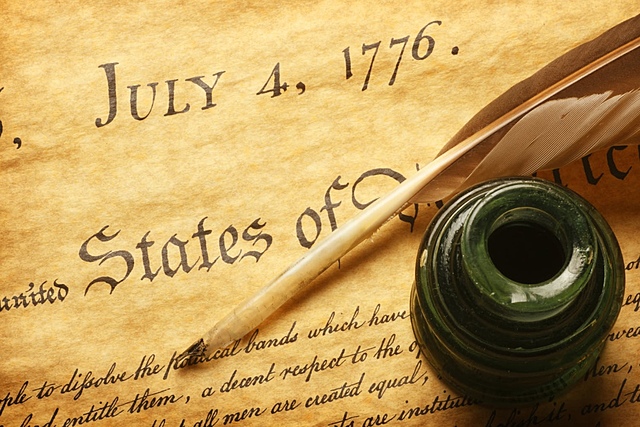 July 4, 1776.
united States of
ple to dissolve the political bands which have
entitle them, a decent respect to the
all men are created equal,
are
it, and